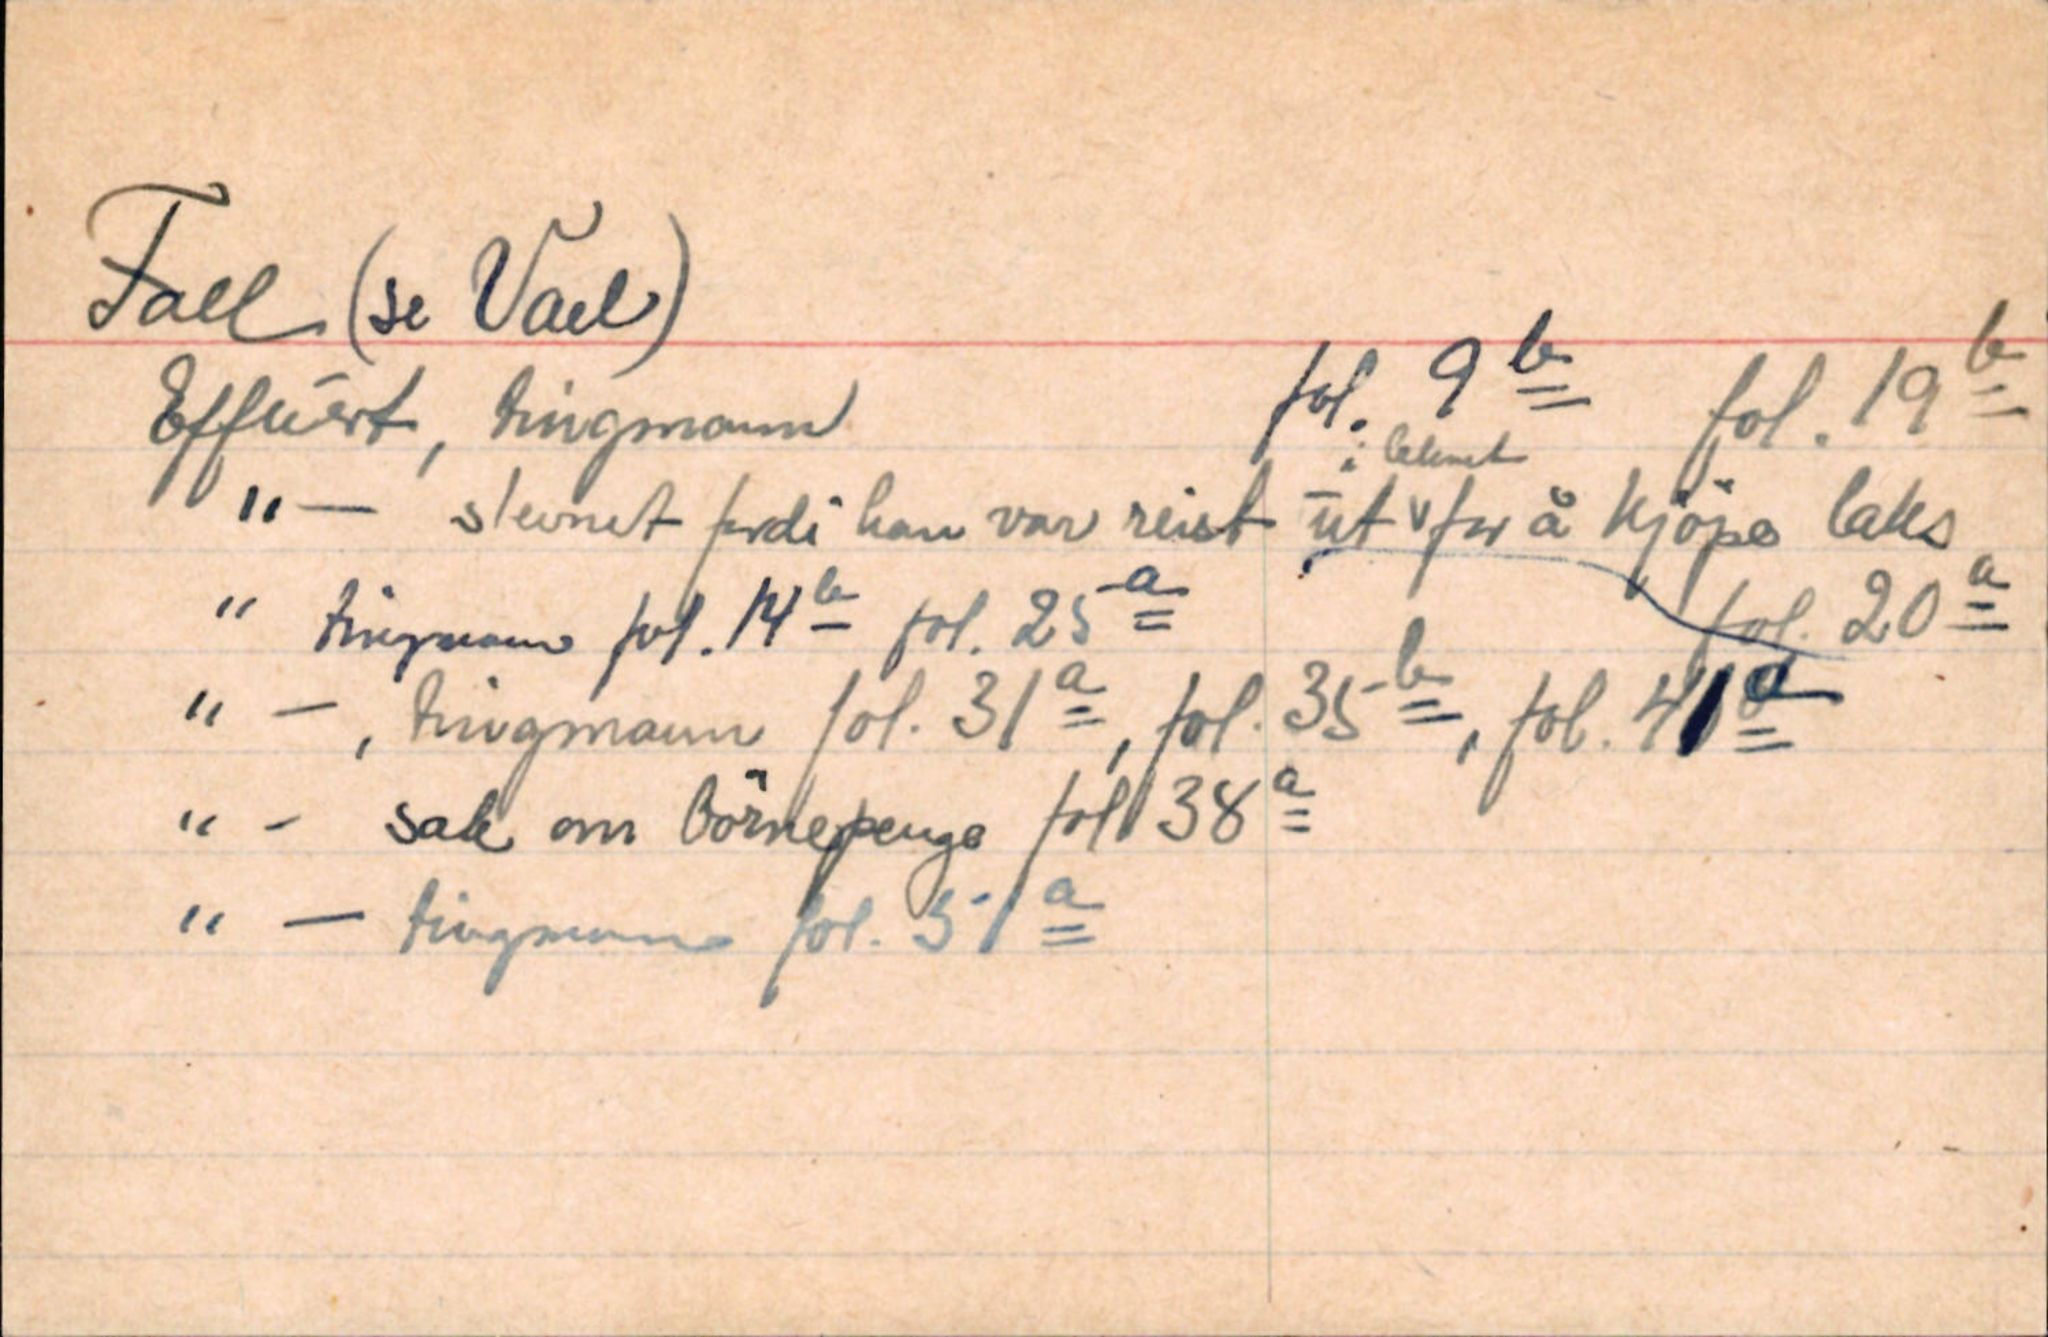 Fall (se Vall)
Effuert, tingmann fol. 9 b fol. 19 b
i lehnet
"— stevnet fordi han var reist ut v for å kjöpe laks
fol. 20 a
" tingmann fol. 14 b fol. 25 a
" —, tingmann fol. 31 a, fol. 35 b, fol. 41 a
" - sak om börnepenge fol 38 a
" — tingmann fol. 51 a